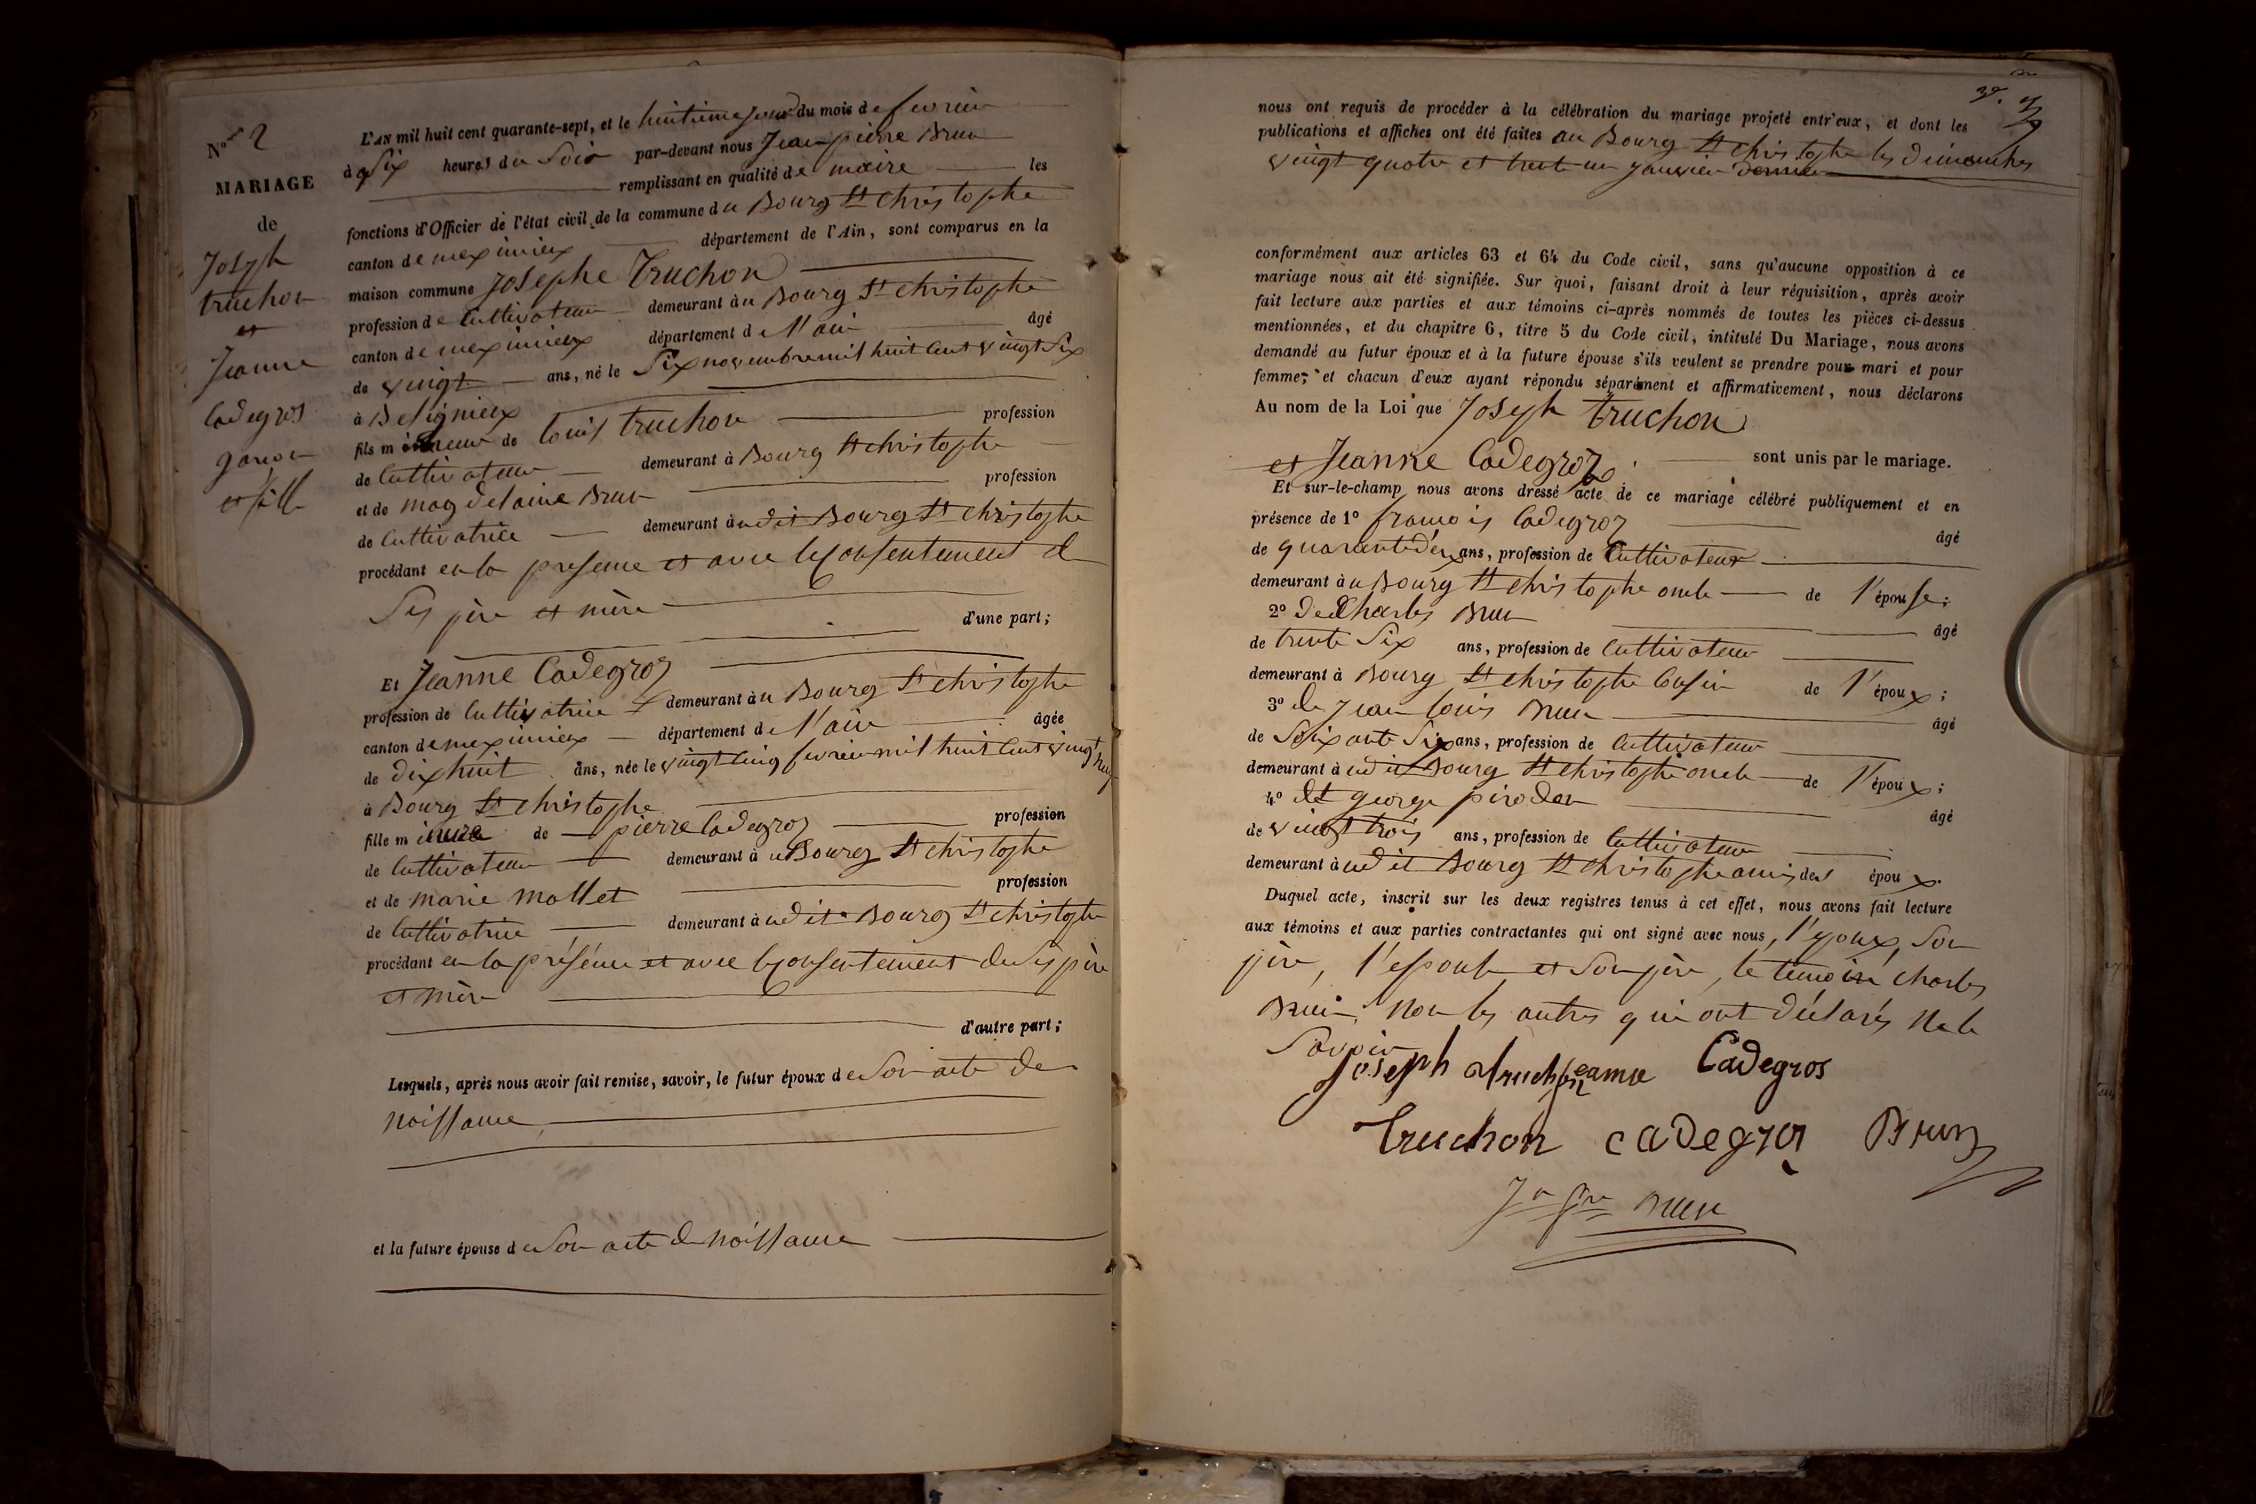 N° 2
MARIAGE
de
Joseph
truchon
et
Jeanne
Cadegros
garcon
et fille
L'AN mil huit cent quarante-sept, et le huitieme jour du mois de fevrier
à Six heures du Soir par-devant nous Jean pierre Brun
remplissant en qualité de maire les
fonctions d'Officier de l'état civil de la commune du Bourg St christophe
canton de meximieux département de l'Ain, sont comparus en la
maison commune Josephe Truchon
profession de Cultivateur demeurant au Bourg St christophe
canton de meximieux département de l'ain âgé
de vingt ans, né le Six novembre mil huit cent vingt Six
à Beligneux
fils mineur de Louis truchon profession
de Cultivateur demeurant à Bourg St christophe
et de magdelaine Brun profession
de Cultivatrice demeurant audit Bourg St christophe
procédant en la presence et avec le consentement de
Ses père et mère
d'une part;
Et Jeanne Cadegroz
profession de Cultivatrice demeurant au Bourg St christophe
canton de meximieux département de l'ain âgée
de dix huit ans, née le vingt cinq fevrier mil huit cent vingt huit
à Bourg St christophe
fille mineure de pierre Cadegroz profession
de Cultivateur demeurant au Bourg St christophe
et de marie mollet profession
de Cultivatrice demeurant audit Bourg St christophe
procédant en la présence et avec le consentement de Ses père
et mère
d'autre part;
Lesquels, après nous avoir fait remise, savoir, le futur époux de Son acte de
naissance
et la future épouse de Son acte de naissance
nous ont requis de procéder à la célébration du mariage projeté entr'eux, et dont les
publications et affiches ont été faites au Bourg St christophe les dimanches
vingt quatre et trente un janvier dernier
conformément aux articles 63 et 64 du Code civil, sans qu'aucune opposition à ce
mariage nous ait été signifiée. Sur quoi, faisant droit à leur réquisition, après avoir
fait lecture aux parties et aux témoins ci-après nommés de toutes les pièces ci-dessus
mentionnées, et du chapitre 6, titre 5 du Code civil, intitulé Du Mariage, nous avons
demandé au futur époux et à la future épouse s'ils veulent se prendre pour mari et pour
femme; et chacun d'eux ayant répondu séparément et affirmativement, nous déclarons
Au nom de la Loi que Joseph Truchon
et Jeanne Cadegroz sont unis par le mariage.
Et sur-le-champ nous avons dressé acte de ce mariage célébré publiquement et en
présence de 1° francois Cadegroz âgé
de quarante deux ans, profession de Cultivateur
demeurant au Bourg St christophe oncle de l'épouse;
2° de Charles Brun âgé
de trente Six ans, profession de Cultivateur
demeurant à Bourg St christophe Cousin de l'époux;
3° de Jean Louis Brun âgé
de Soixante Six ans, profession de Cultivateur
demeurant audit Bourg St christophe oncle de l'époux;
4° et george pirodon âgé
de vingt trois ans, profession de Cultivateur
demeurant audit Bourg St christophe amis des époux.
Duquel acte, inscrit sur les deux registres tenus à cet effet, nous avons fait lecture
aux témoins et aux parties contractantes qui ont signé avec nous, l'epoux, Son
père, l'epouse et Son père, le témoin charles
Brun. Non les autres qui ont déclarés Ne le
Savoir
Joseph truchon Jeanne Cadegros
Truchon cadegroz Brun
Jn Pre Brun